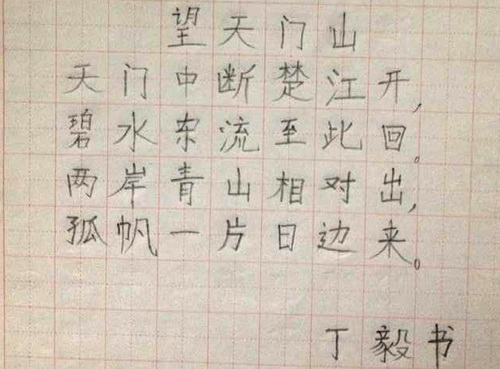 望天门山
天门中断楚江开,
碧水东流至此回。
两岸青山相对出,
孤帆一片日边来。
丁毅书